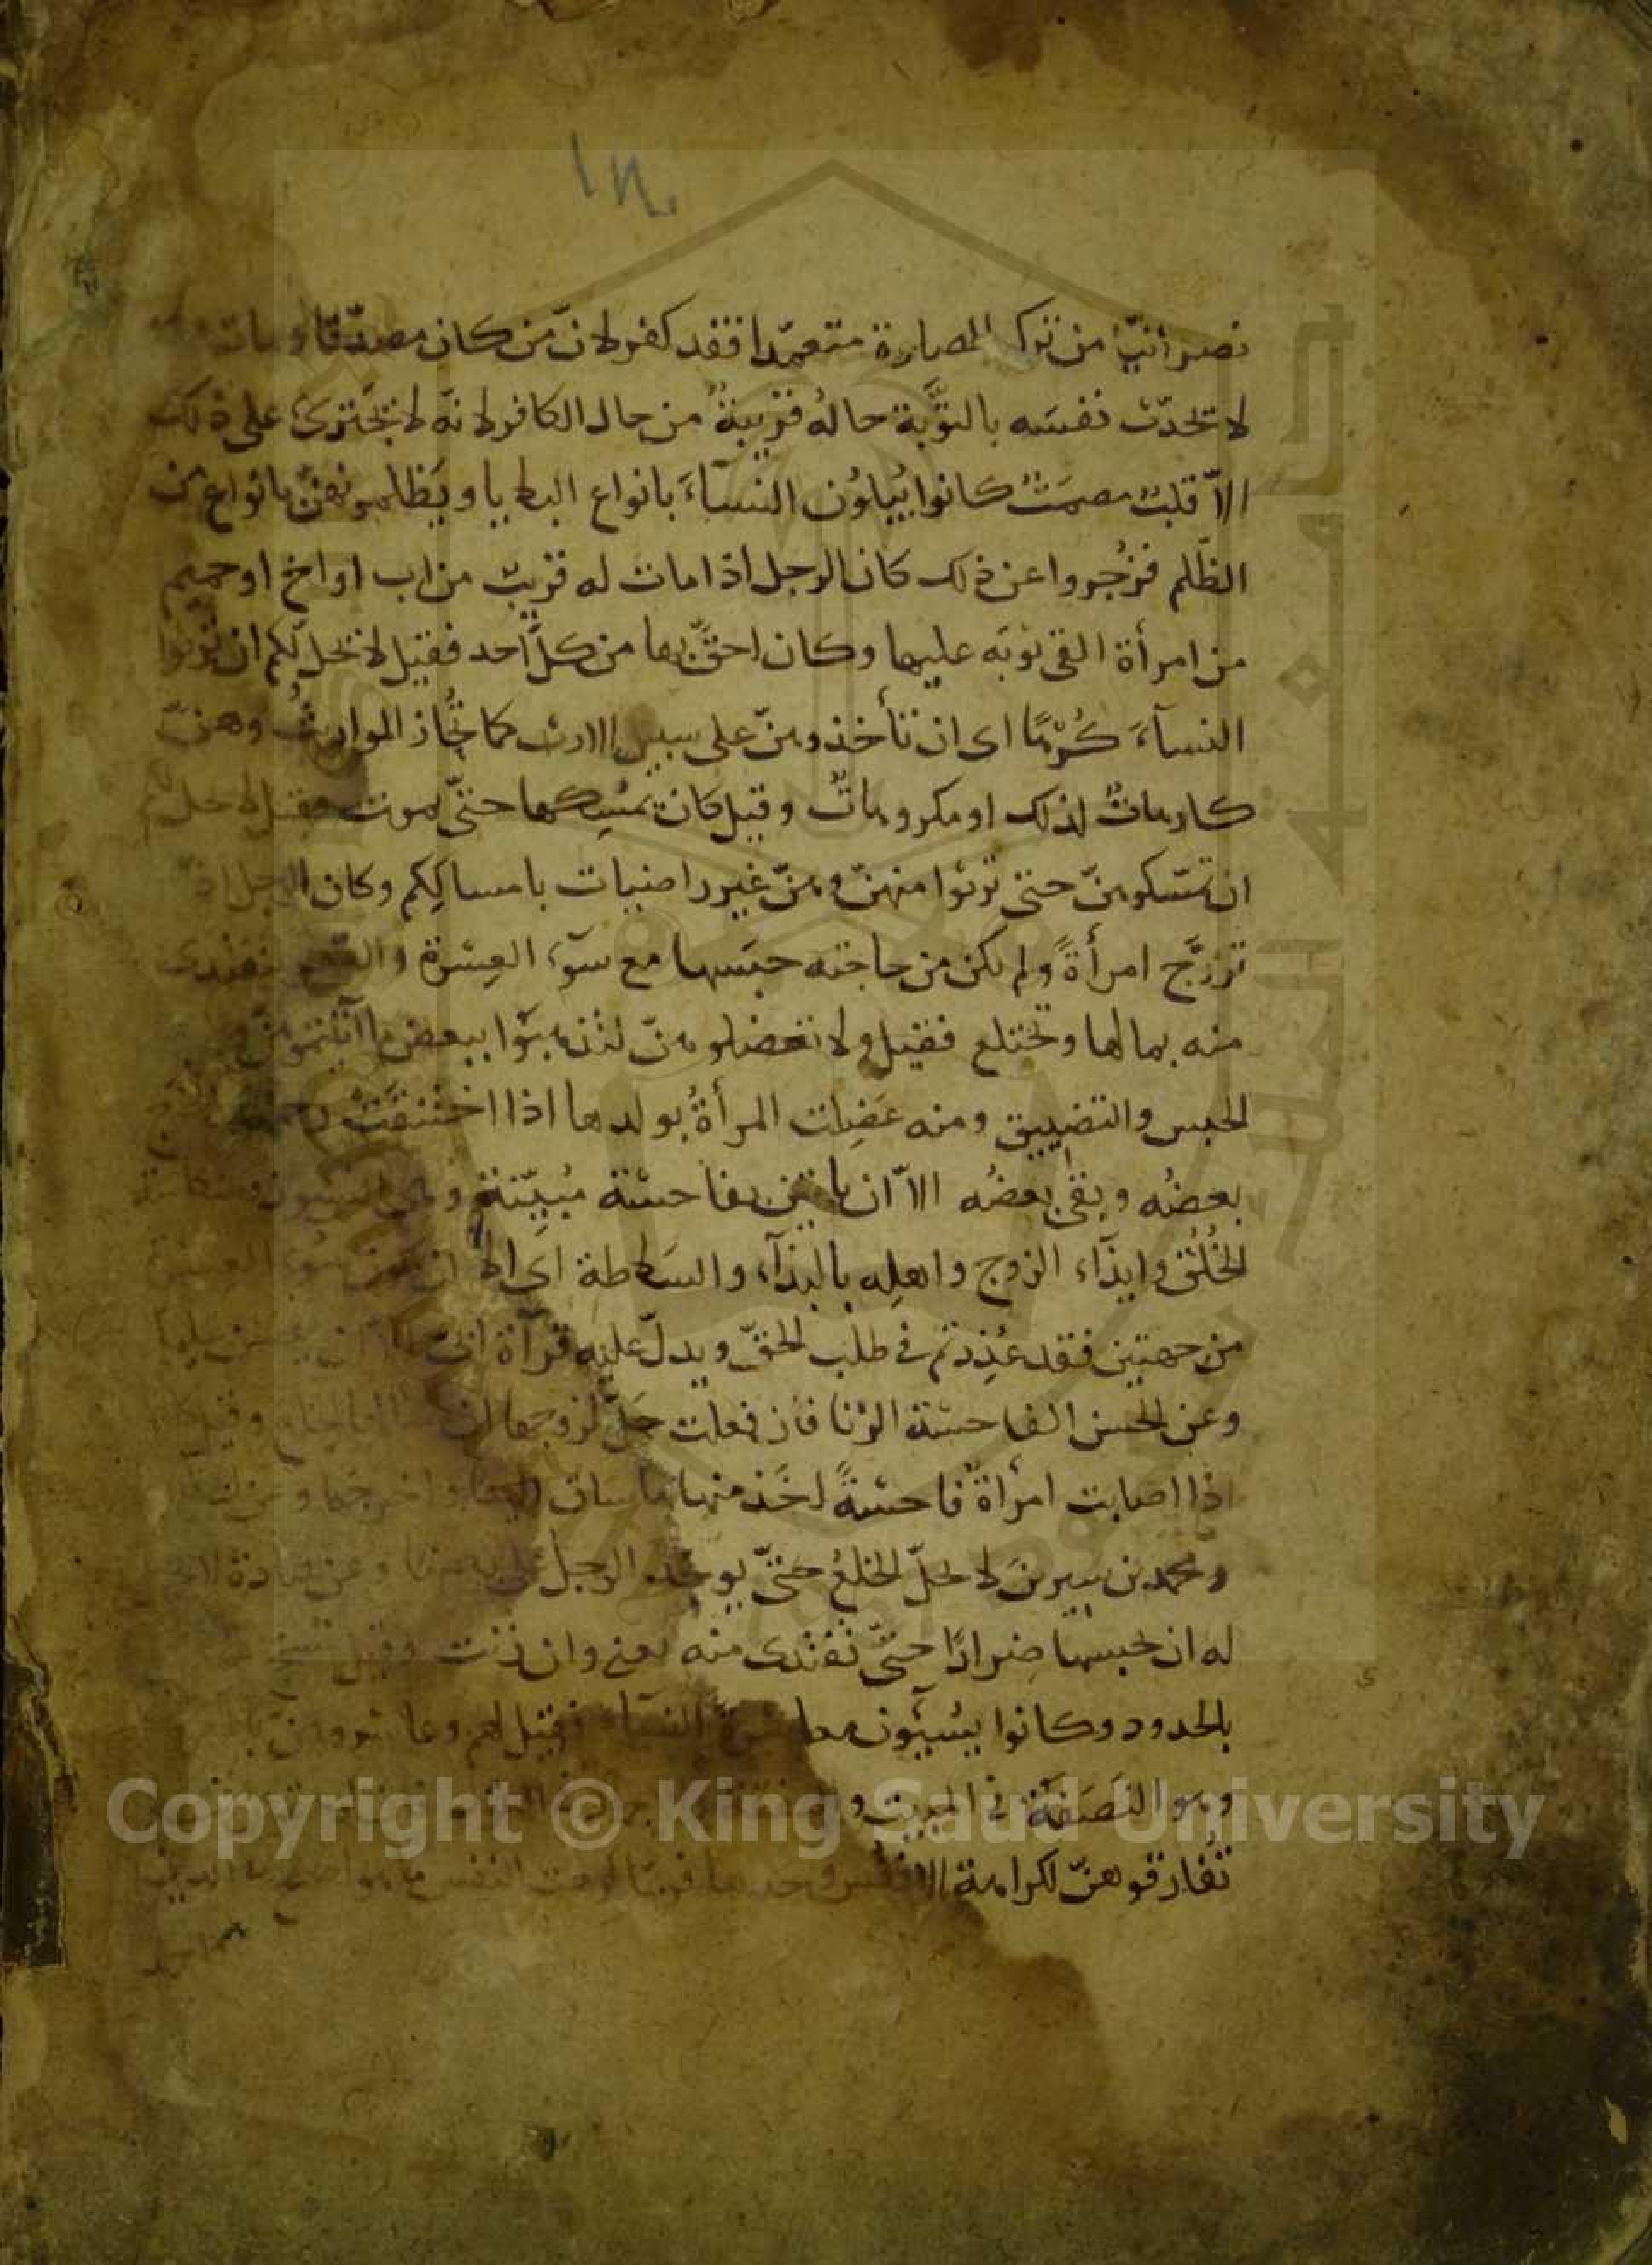 نصرانيّا من ترك الصلوة متعمّدا فقد كفر لانّ من كان مصدّقا ومات
لا تحدّث نفسه بالتوبة حاله قريبة من حال الكافر لانه لا يجترئ على ذلك
الّا قلبٌ مصمتٌ كانوا يُبلون النسآءَ بانواع البلايا ويظلمونهنّ بانواع من
الظّلم فزُجروا عن ذلك كان الرجل اذا مات له قريبٌ من اب او اخ او حميم
من امرأة القى ثوبه عليها وكان احقّ بها من كلّ احد فقيل لا يحلّ لكم ان ترثوا
النسآءَ كُرْهًا اى ان تأخذوهنّ على سبيل الارث كما تُحاز المواريثُ وهنّ
كارهاتٌ لذلك او مكرهاتٌ وقيل كان يُمسكها حتّى تموت فقيل لا يحلّ لكم
ان تمسكوهنّ حتى ترثوا منهنّ وهنّ غير راضيات بامساككم وكان الرجل اذا
تزوّج امرأةً ولم تكن من حاجته حبسها مع سوٓء العِشْرة والقهر لتفتدى
منه بمالها وتختلع فقيل ولا تعضلوهنّ لتذهبوا ببعض ما آتيتموهنّ
الحبس والتضييق ومنه عَضِلت المرأةُ بولدها اذا اختنقت رحمها
بعضُه وبقى بعضُه الّا ان ياتين بفاحشة مُبيّنة وهى النشوز وشكاسة
الخُلُق وايذآء الزوج واهلِه بالبذآء والسلاطة اى الا ان يكون سوء العشرة
من جهتهن فقد عُذِرتم فى طلب الخلع ويدلّ عليه قرآة ابىّ الا ان يفحشن عليكم
وعن الحسن الفاحشة الزنا فان فعلت حلّ لزوجها ان يسألها الخلع وقيل
اذا اصابت امرأة فاحشةً اخذ منها ما ساق اليها واخرجها وعن
ومحمد بن سيرينَ لا يحلّ الخلعُ حتّى يوجد الرجل على بطنها وعن قتادة لا يحل
له ان يحبسها ضِرارًا حتّى تفتدى منه يعنى وان زنت وقيل نسخ
بالحدود وكانوا يُسيئون معاشرة النسآء فقيل لهم وعاشروهنّ
وهو النَصَفَة فى المبيت و
تُفارقوهنّ لكراهة الانفس وحدها فربّما كرهت النفس ما هو اصلح فى الدين